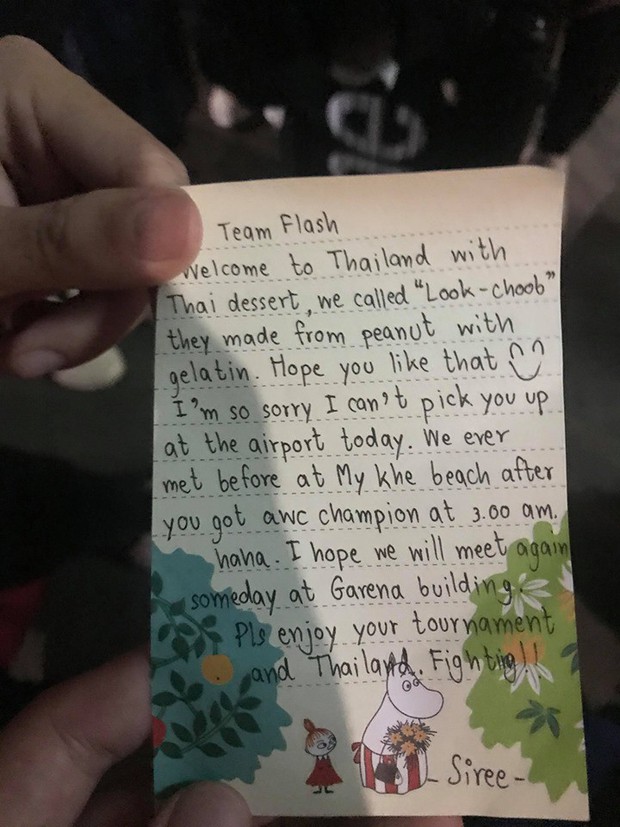 Team Flash
Welcome to Thailand with
Thai dessert, we called "Look-choob"
they made from peanut with
gelatin. Hope you like that
I'm so sorry I can't pick you up
at the airport today. We ever
met before at My khe beach after
you got awc champion at 3.00 am.
haha. I hope we will meet again
someday at Garena building.
Pls enjoy your tournament
and Thailand. Fighting!!
- Siree -